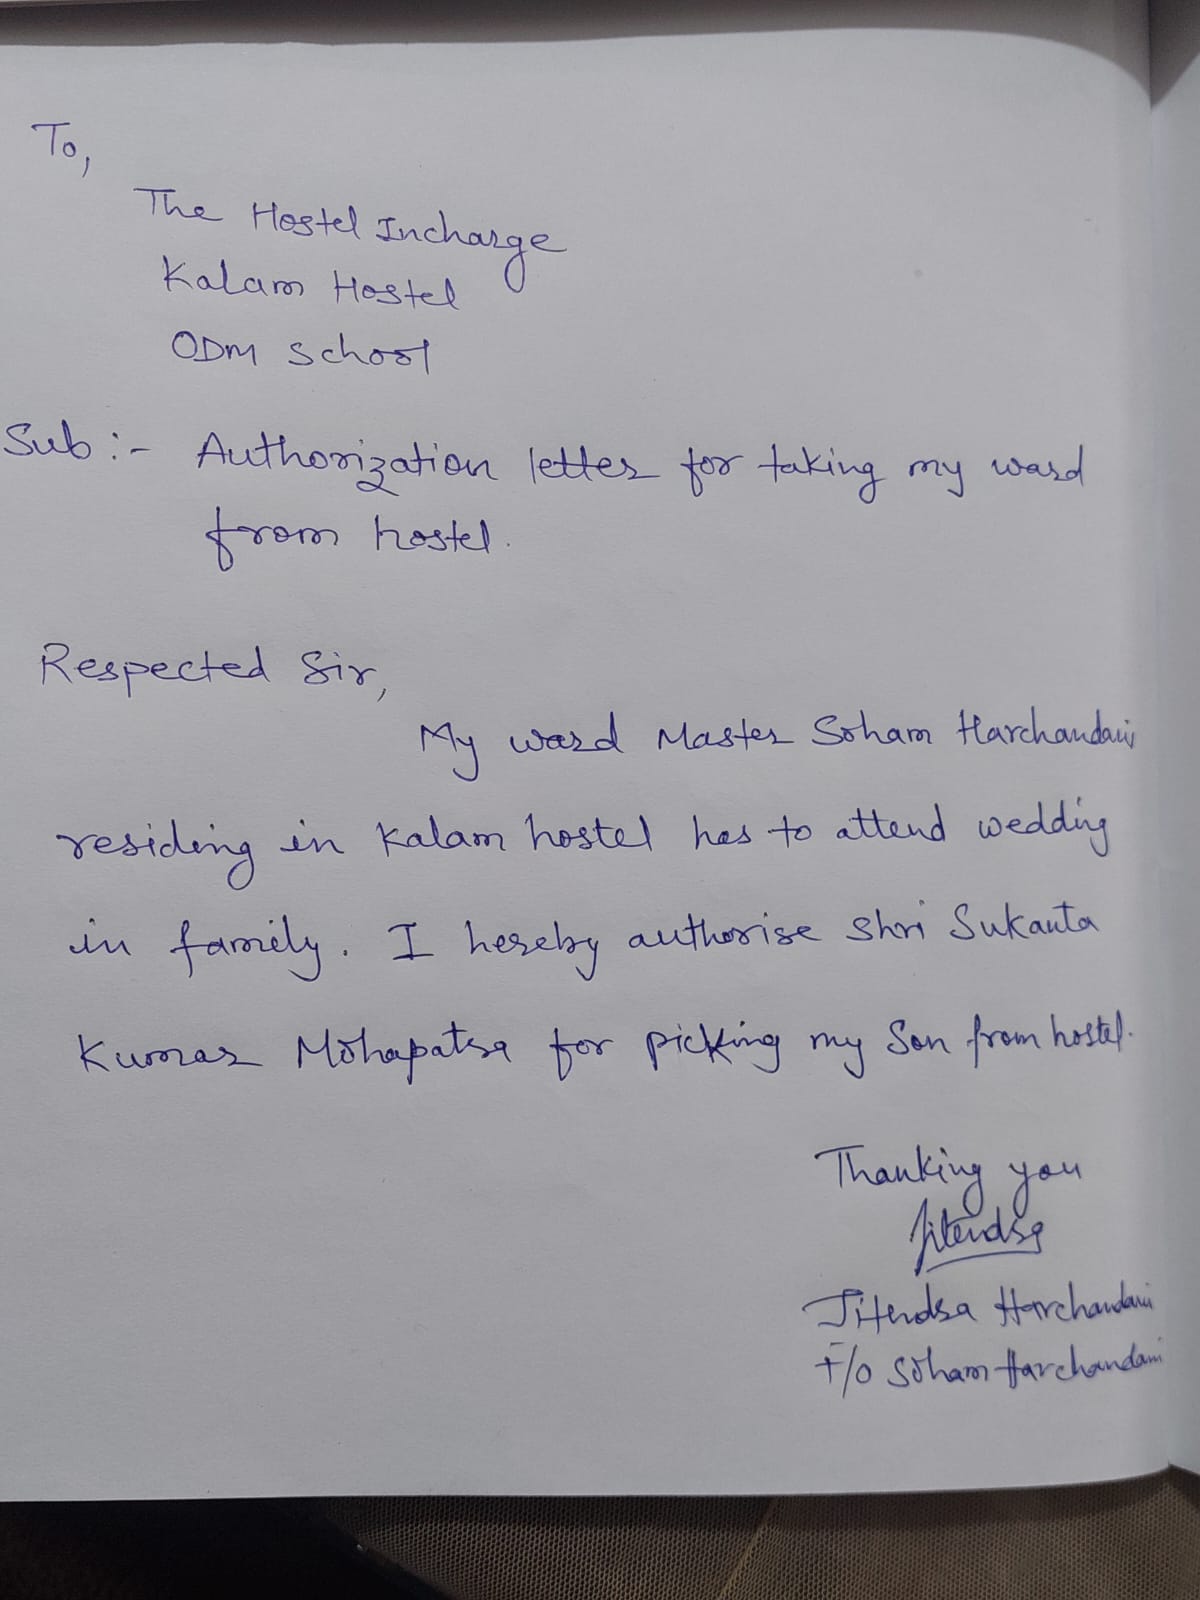 To,
The Hostel Incharge
Kalam Hostel
ODM School
Sub :- Authorization letter for taking my ward
from hostel.
Respected Sir,
My ward Master Soham Harchandani
residing in Kalam hostel has to attend wedding
in family. I hereby authorise Shri Sukanta
Kumar Mohapatra for picking my Son from hostel.
Thanking you
Jitendra
Jitendra Harchandani
F/o Soham Harchandani